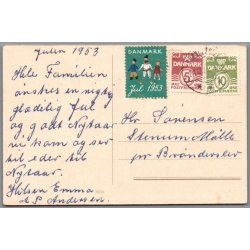 Julen 1953
Hele Familien
ønskes en rigtig
glædelig Jul
og godt Nytaar
vi kom og ser
til eder til
Nytaar.
Hilsen Emma
Andersen.
DANMARK
Jul 1953
5
DANMARK
10
DANMARK
Hr Sørensen
Stenum Mølle
pr Brønderslev